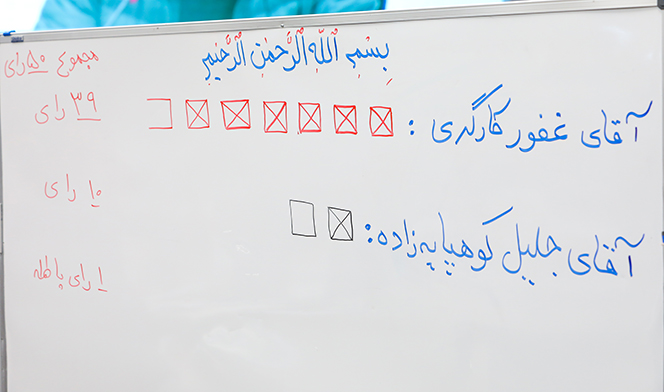 بِسْمِ ٱللّٰهِ ٱلرَّحْمٰنِ ٱلرَّحِيمِ
مجموع ۵۰ رای
آقای غفور کارگری :
۳۹ رای
آقای جلیل کوهپایه زاده:
۱۰ رای
۱ رای باطله